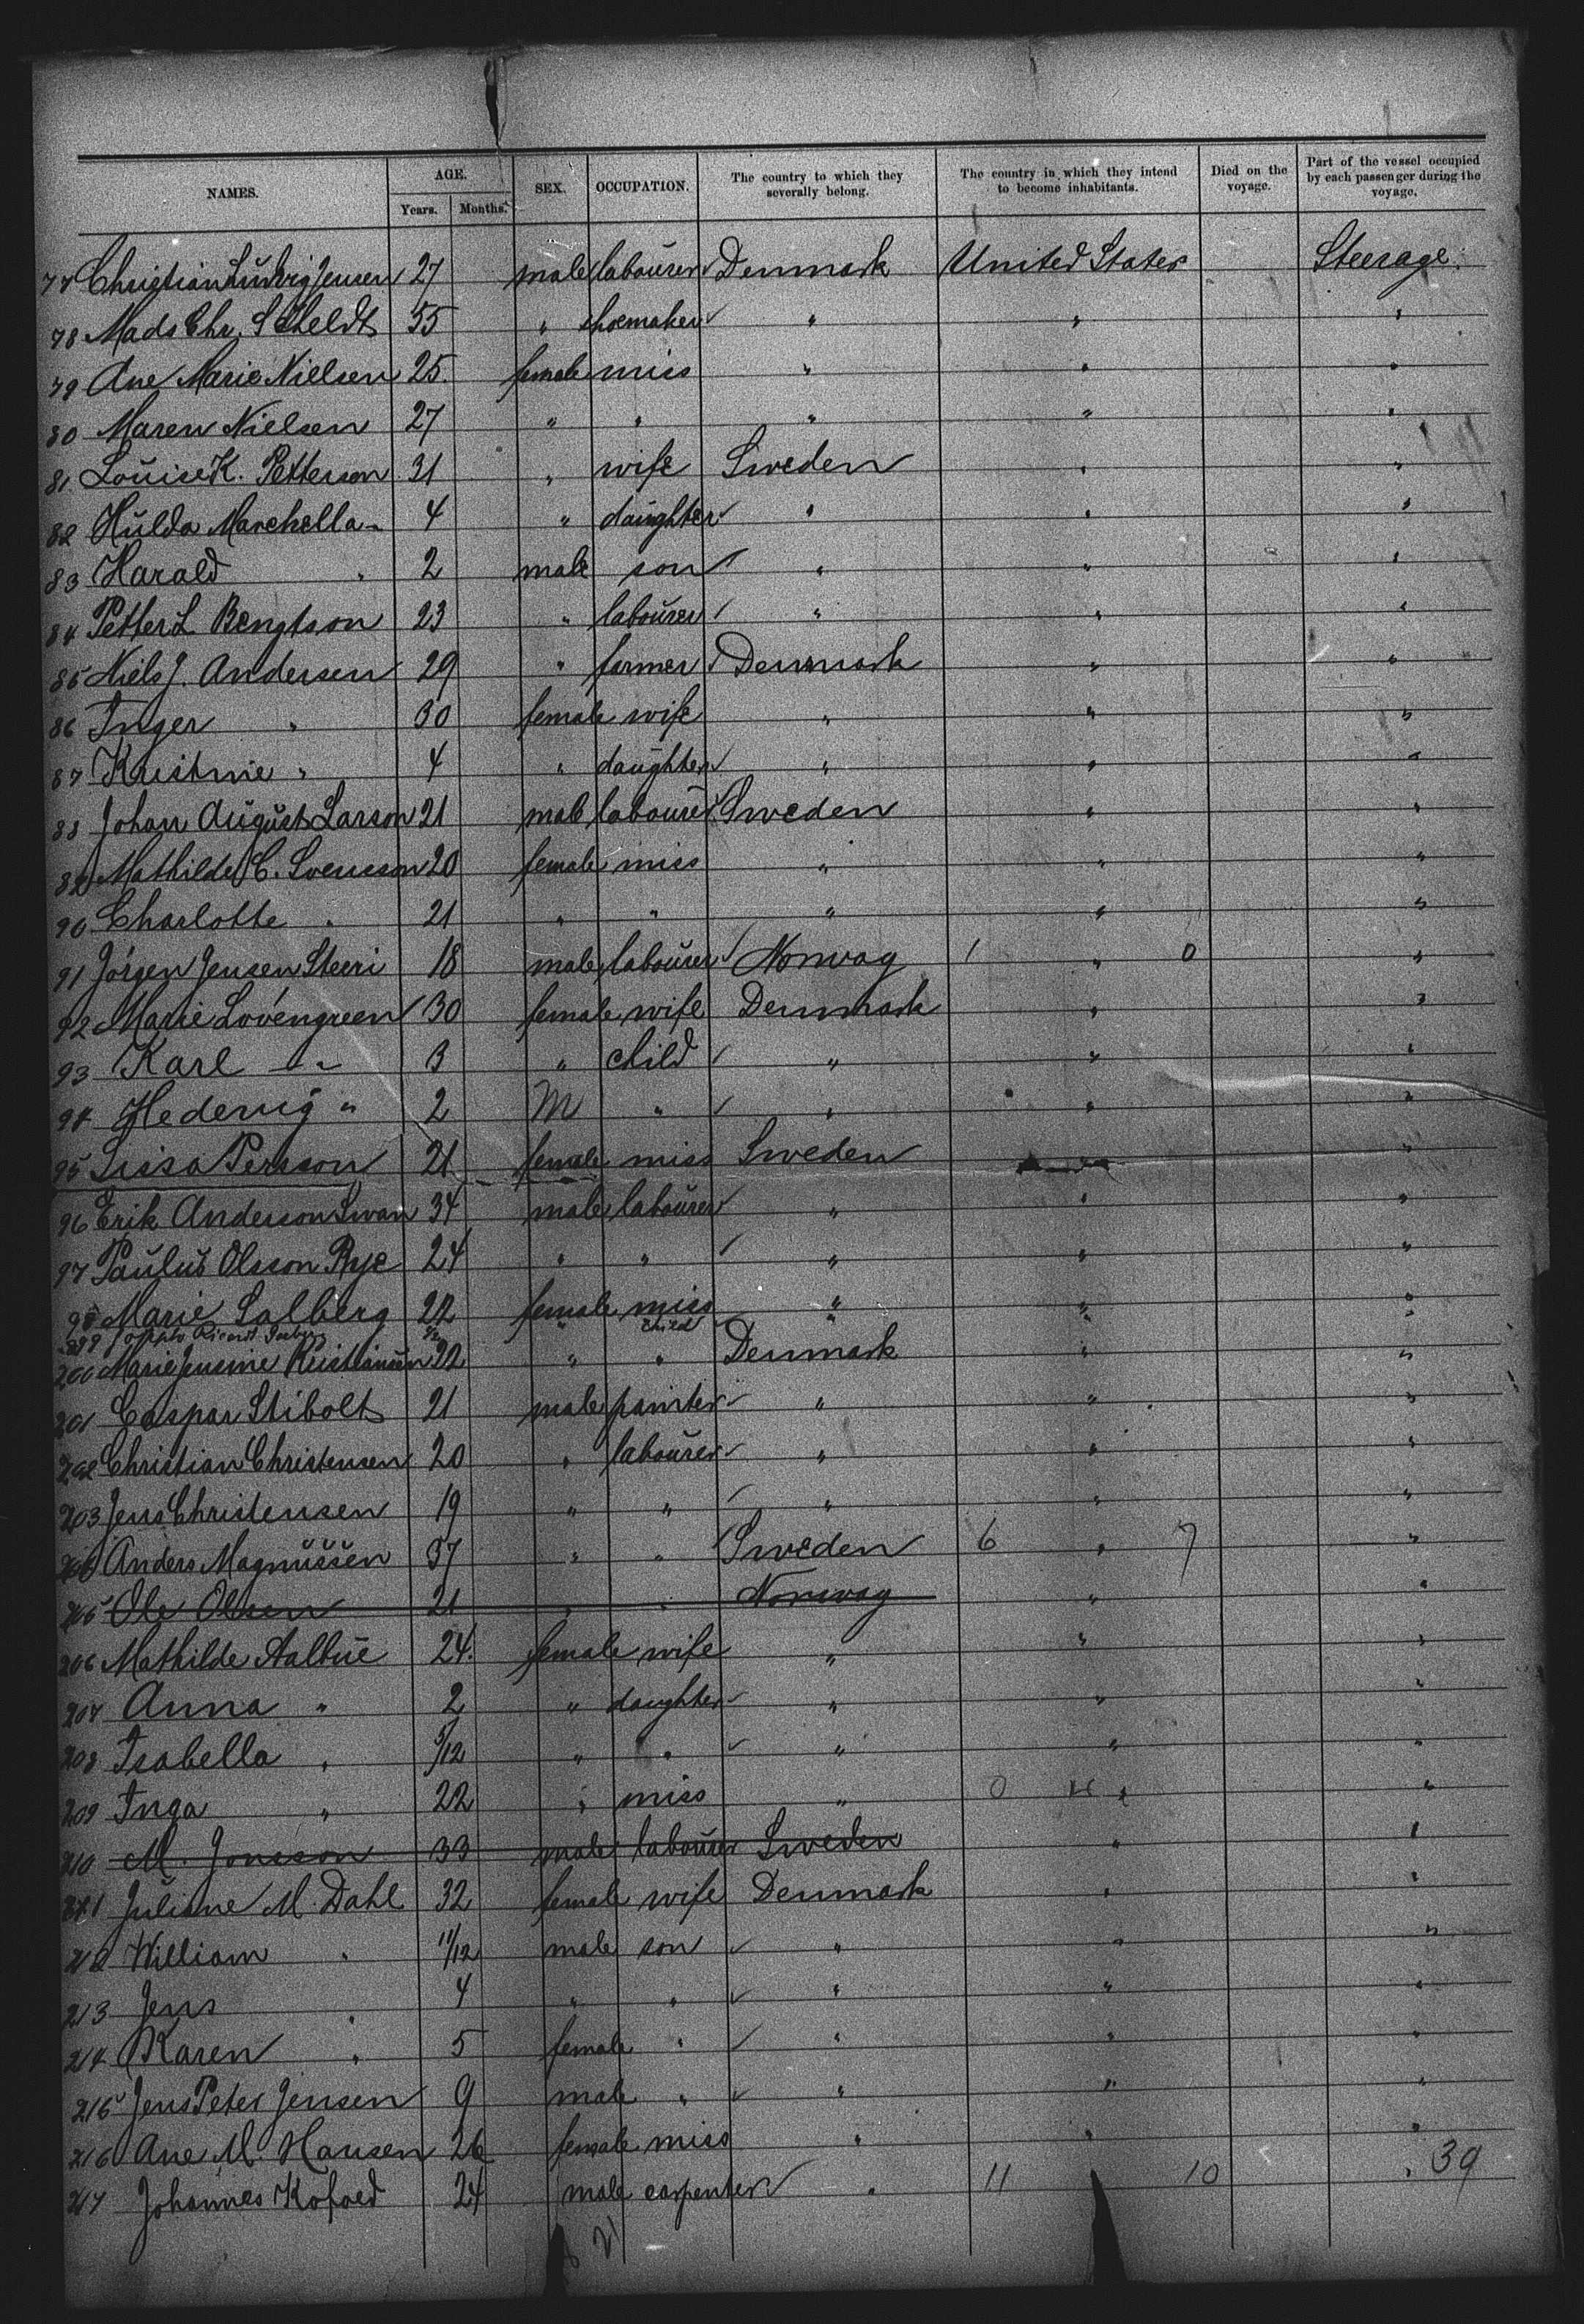 NAMES. AGE. Years. Months. SEX. OCCUPATION. The country to which they severally belong. The country in which they intend to become inhabitants. Died on the voyage. Part of the vessel occupied by each passenger during the voyage.
77 Christian Ludvig Jensen 27 male labourer Denmark United States Steerage.
78 Mads Chr. Scheldt 55 " shoemaker " " "
79 Ane Marie Nielsen 25. female miss " " "
80 Maren Nielsen 27 " " " " "
81. Louise K. Petterson 31 " wife Sweden " "
82 Hulda Marchella " 4 " daughter " " "
83 Harald " 2 male son " " "
84 Petter L Bengtson 23 " labourer " " "
85 Niels J. Andersen 29 " farmer Denmark " "
86 Inger " 30 female wife " " "
87 Kristine " 4 " daughter " " "
88 Johan August Larson 21 male labourer Sweden " "
89 Mathilde C. Svensson 20 female miss " " "
90 Charlotte " 21 " " " " "
91 Jörgen Jensen Steeri 18 male labourer Norway 1 " 0 "
92 Marie Lovengreen 30 female wife Denmark " "
93 Karl " 3 " child " " "
94 Hedevig " 2 M " " " "
95 Lissa Persson 21 female miss Sweden " "
96 Erik Anderson Swan 34 male labourer " " "
97 Paulus Olsson Rye 24 " " " " "
98 Marie Salberg 22 female miss " " "
199 Ricard " child
200 Marie Jensine Kristiansen 22 " " Denmark " "
201 Caspar Stibolt 21 male painter " " "
202 Christian Christensen 20 " labourer " " "
203 Jens Christensen 19 " " " " "
204 Anders Magnussen 37 " " Sweden 6 " 7 "
205 Ole Olsen 21 " " Norway " "
206 Mathilde Aalbue 24. female wife " " "
207 Anna " 2 " daughter " " "
208 Isabella " 5/12 " " " " "
209 Inga " 22 " miss " 0 4 " "
210 M. Jonsson 33 male labourer Sweden " "
211 Juliane M. Dahl 32 female wife Denmark " "
212 William " 11/12 male son " " "
213 Jens " 4 " " " " "
214 Karen " 5 female " " " "
215 Jens Peter Jensen 9 male " " " "
216 Ane M. Hansen 26 female miss " " "
217 Johannes Kofoed 24 male carpenter " 11 10 " 39
21